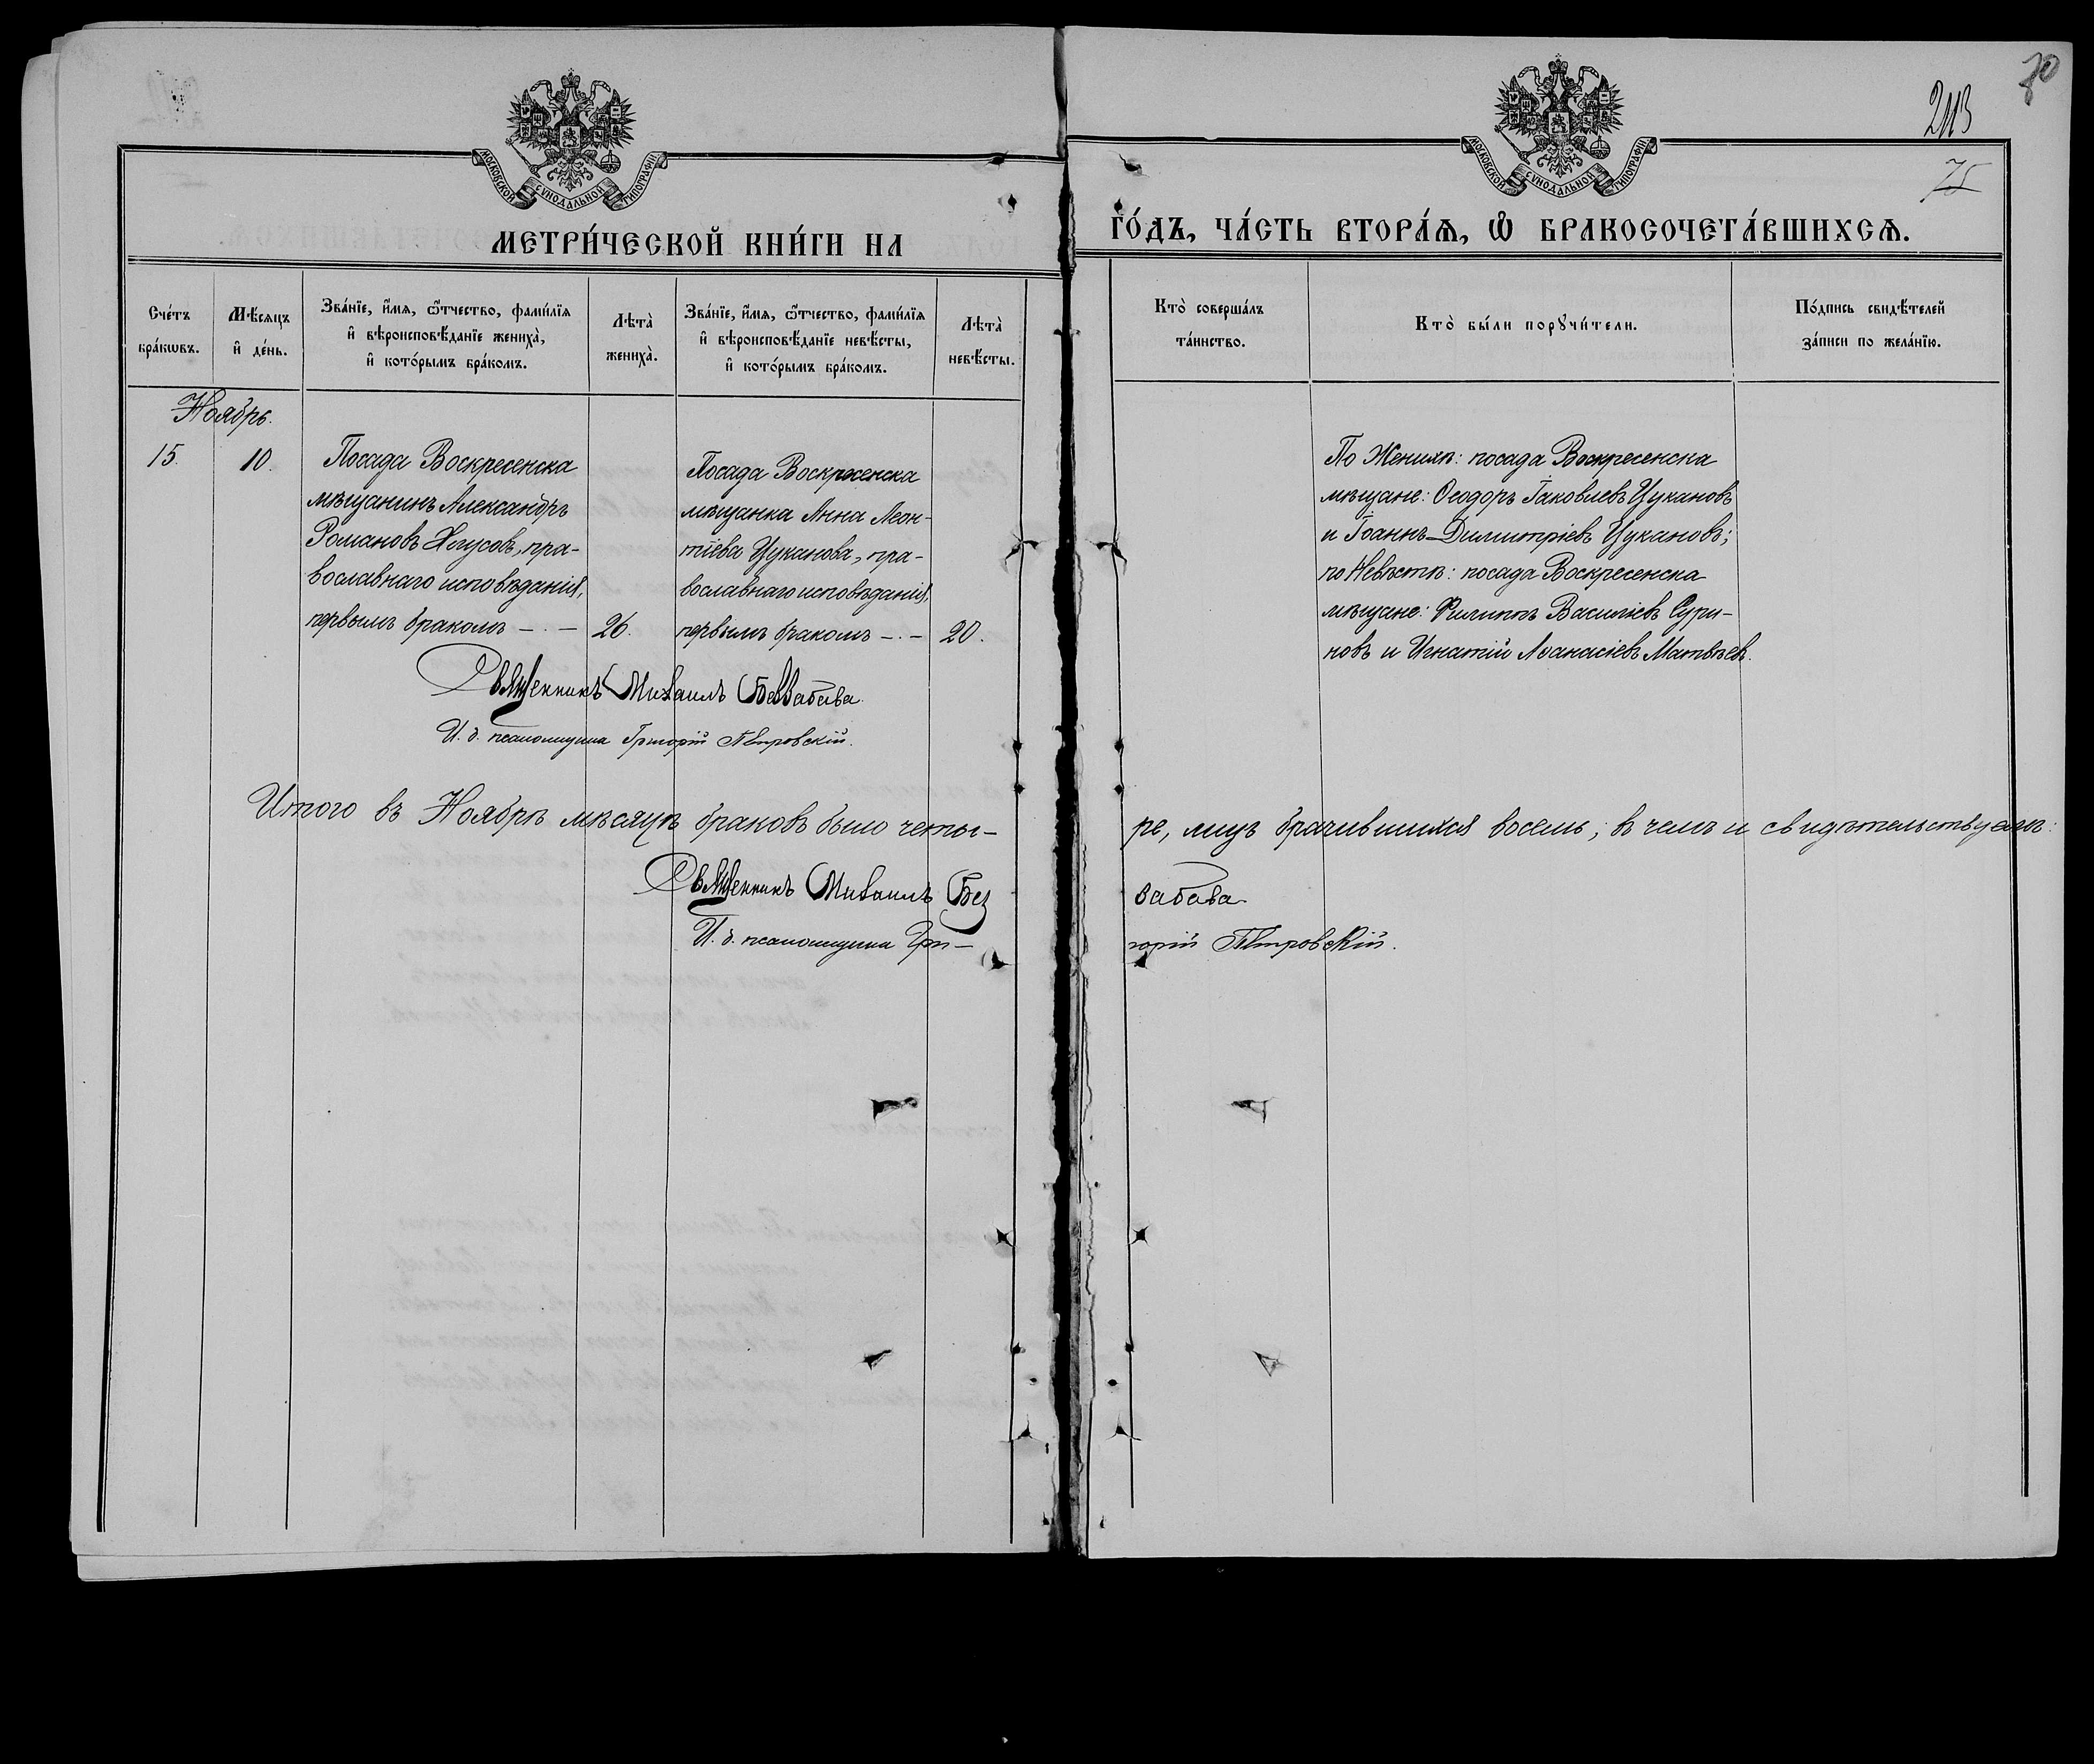 70
213
75
МОСКОВСКОЙ СѴНОДАЛЬНОЙ ТИПОГРАФІИ
МОСКОВСКОЙ СѴНОДАЛЬНОЙ ТИПОГРАФІИ
МЕТРИ́ЧЕСКОЙ КНИ́ГИ НА
ГО́ДЪ, ЧА́СТЬ ВТОРА́Ѧ, Ѡ БРАКОСОЧЕТА́ВШИХСѦ.
Сче́тъ
бра́кѡвъ.
Мѣ́сяцъ
и҆ де́нь.
Зва́нїе, и҆́мя, ѻ҆́тчество, фами́лїя
и҆ вѣроисповѣ́данїе жениха̀,
и҆ кото́рымъ бра́комъ.
Лѣта̀
жениха̀.
Зва́нїе, и҆́мя, ѻ҆́тчество, фами́лїя
и҆ вѣроисповѣ́данїе невѣ́сты,
и҆ кото́рымъ бра́комъ.
Лѣта̀
невѣ́сты.
Кто̀ соверша́лъ
та́инство.
Кто̀ бы́ли порꙋчи́тели.
По́дпись свидѣ́телей
за́писи по жела́нїю.
Ноябрь.
15.
10.
Посада Воскресенска
мѣщанинъ Александръ
Романовъ пра-
вославнаго исповѣданія,
первымъ бракомъ – . –
26.
Посада Воскресенска
мѣщанка Анна Леон-
тіева Цуканова, пра-
вославнаго исповѣданія,
первымъ бракомъ – . –
20.
По Женихѣ: посада Воскресенска
мѣщане: Ѳеодоръ Іаковлевъ Цукановъ
и Іоаннъ Димитріевъ Цукановъ;
по Невѣстѣ: посада Воскресенска
мѣщане: Филиппъ Василіевъ Сури-
новъ и Игнатій Аѳанасіевъ Матвѣевъ.
Священникъ Михаилъ Беззабава.
И. д. псаломщика Григорій Петровскій.
Итого въ Ноябрѣ мѣсяцѣ браковъ было четы-
ре, лицъ брачившихся восемь; въ чемъ и свидѣтельствуемъ:
Священникъ Михаилъ Без
забава.
И. д. псаломщика Гри-
горій Петровскій.